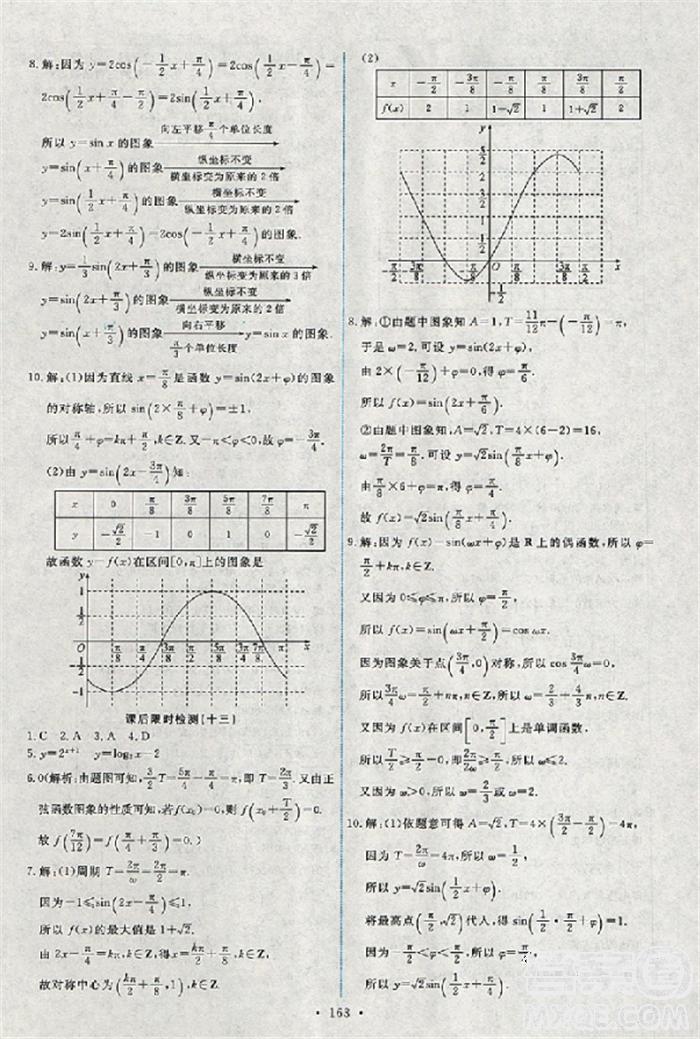 8.解:因为 y=2cos(-1/2x+π/4)=2cos(1/2x-π/4)=
2cos(1/2x+π/4-π/2)=2sin(1/2x+π/4).
所以 y=sin x 的图象 向左平移π/4个单位长度
y=sin(x+π/4)的图象 纵坐标不变 横坐标变为原来的2倍
y=sin(1/2x+π/4)的图象 横坐标不变 纵坐标变为原来的2倍
y=2sin(1/2x+π/4)=2cos(-1/2x+π/4)的图象.
9.解:y=1/3sin(2x+π/3)的图象 横坐标不变 纵坐标变为原来的3倍
y=sin(2x+π/3)的图象 纵坐标不变 横坐标变为原来的2倍
y=sin(x+π/3)的图象 向右平移 π/3个单位长度 y=sin x 的图象.
10.解:(1)因为直线 x=π/8是函数 y=sin(2x+φ)的图象
的对称轴,所以 sin(2×π/8+φ)=±1,
所以π/4+φ=kπ+π/2,k∈Z.又-π<φ<0,所以φ=-3π/4.
(2)由 y=sin(2x-3π/4)知:
x 0 π/8 3π/8 5π/8 7π/8 π
y -√2/2 -1 0 1 0 -√2/2
故函数 y=f(x)在区间[0,π]上的图象是
y
1
1/2
O π/8 π/4 3π/8 π/2 5π/8 3π/4 7π/8 π x
-1/2
-1
课后限时检测[十三]
1.C 2.A 3.A 4.D
5.y=2^(x+1) y=log₂x-2
6.0(解析:由题图可知,3/2T=5π/4-π/4=π,即 T=2π/3.又由正
弦函数图象的性质可知,若f(x₀)=0,则 f(x₀+T/2)=0.
故 f(7π/12)=f(π/4+π/3)=0.)
7.解:(1)周期 T=2π/ω=2π/2=π.
因为-1≤sin(2x-π/4)≤1,
所以 f(x)的最大值是1+√2.
由 2x-π/4=kπ,k∈Z,得 x=kπ/2+π/8,
故对称中心为(kπ/2+π/8,1),k∈Z.
(2)
x -π/2 -3π/8 -π/8 π/8 3π/8 π/2
f(x) 2 1 1-√2 1 1+√2 2
y
5/2
2
3/2
1
1/2
-π/2 -3π/8 -π/4 -π/8 O π/8 π/4 3π/8 π/2 x
8.解:①由题中图象知 A=1,T=11/12π-(-π/12)=π,
于是 ω=2,可设 y=sin(2x+φ),
由 2×(-π/12)+φ=0,得φ=π/6.
所以 f(x)=sin(2x+π/6).
②由题中图象知,A=√2,T=4×(6-2)=16,
ω=2π/T=π/8,可设 y=√2sin(π/8x+φ),
由π/8×6+φ=π,得φ=π/4.
故 f(x)=√2sin(π/8x+π/4).
9.解:因为 f(x)=sin(ωx+φ)是 R 上的偶函数,所以φ=
π/2+kπ,k∈Z.
又因为 0≤φ≤π,所以φ=π/2,
所以 f(x)=sin(ωx+π/2)=cos ωx.
因为图象关于点(3π/4,0)对称,所以 cos 3π/4ω=0.
所以3π/4ω=π/2+nπ,n∈Z,所以ω=2/3+4/3n,n∈Z.
又因为 f(x)在区间[0,π/2]上是单调函数,
所以T/2≥π/2-0,即1/2×2π/ω≥π/2,所以ω≤2.
又因为ω>0,所以ω=2/3或ω=2.
10.解:(1)依题意可得 A=√2,T=4×(3π/2-π/2)=4π,
因为 T=2π/ω=4π,所以ω=1/2,
所以 y=√2sin(1/2x+φ),
将最高点(π/2,√2)代人,得 sin(1/2·π/2+φ)=1.
因为-π/2<φ<π/2,所以φ=π/4,
所以 y=√2sin(1/2x+π/4).
163